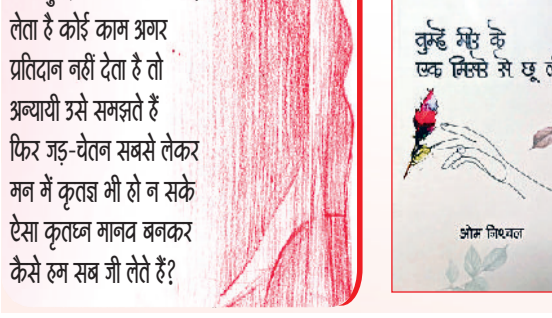 लेता है कोई काम अगर
प्रतिदान नहीं देता है तो
अन्यायी उसे समझते हैं
फिर जड़-चेतन सबसे लेकर
मन में कृतज्ञ भी हो न सके
ऐसा कृतघ्न मानव बनकर
कैसे हम सब जी लेते हैं?
तुम्हें मीर के
एक मिसरे से छू
ओम निश्चल